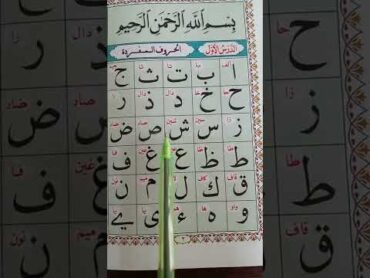 بِسْمِ اللهِ الرَّحْمٰنِ الرَّحِيْمِ
الدَّرْسُ الْاَوَّلُ الحُروف المُفرَدة
ا ب ت ث ج
ح خ د ذ ر
ز س ش ص ض
ط ظ ع غ ف
ق ك ل م ن
و ه ء ي ے